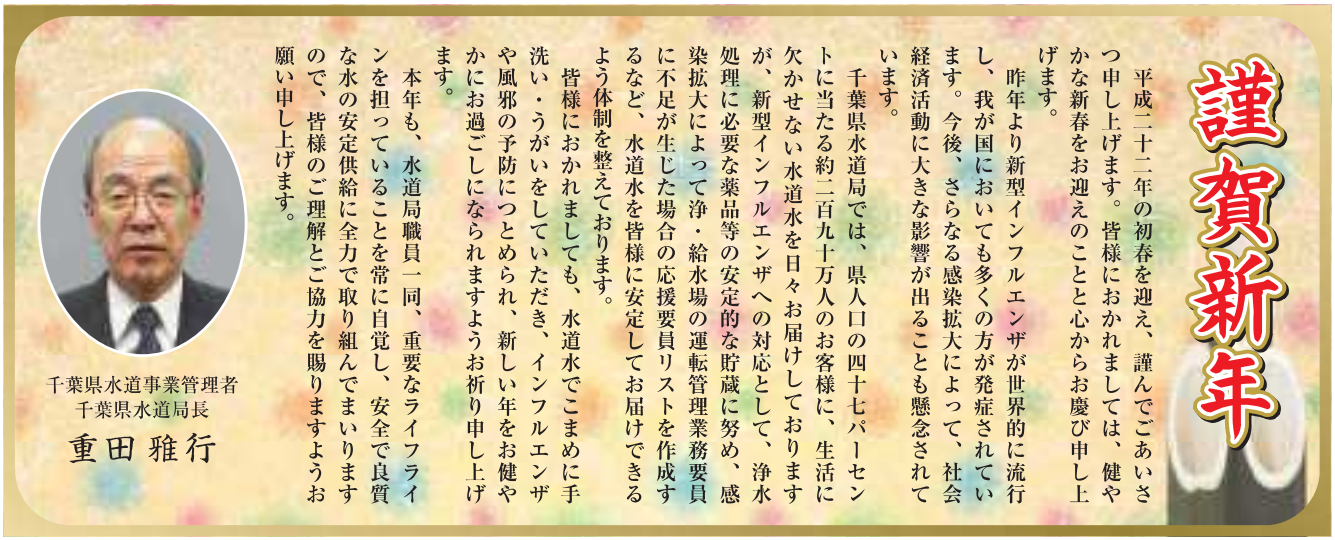 謹賀新年
平成二十二年の初春を迎え、謹んでごあいさ
つ申し上げます。皆様におかれましては、健や
かな新春をお迎えのことと心からお慶び申し上
げます。
昨年より新型インフルエンザが世界的に流行
し、我が国においても多くの方が発症されてい
ます。今後、さらなる感染拡大によって、社会
経済活動に大きな影響が出ることも懸念されて
います。
千葉県水道局では、県人口の四十七パーセン
トに当たる約二百九十万人のお客様に、生活に
欠かせない水道水を日々お届けしております
が、新型インフルエンザへの対応として、浄水
処理に必要な薬品等の安定的な貯蔵に努め、感
染拡大によって浄・給水場の運転管理業務要員
に不足が生じた場合の応援要員リストを作成す
るなど、水道水を皆様に安定してお届けできる
よう体制を整えております。
皆様におかれましても、水道水でこまめに手
洗い・うがいをしていただき、インフルエンザ
や風邪の予防につとめられ、新しい年をお健や
かにお過ごしになられますようお祈り申し上げ
ます。
本年も、水道局職員一同、重要なライフライ
ンを担っていることを常に自覚し、安全で良質
な水の安定供給に全力で取り組んでまいります
ので、皆様のご理解とご協力を賜りますようお
願い申し上げます。
千葉県水道事業管理者
千葉県水道局長
重田 雅行